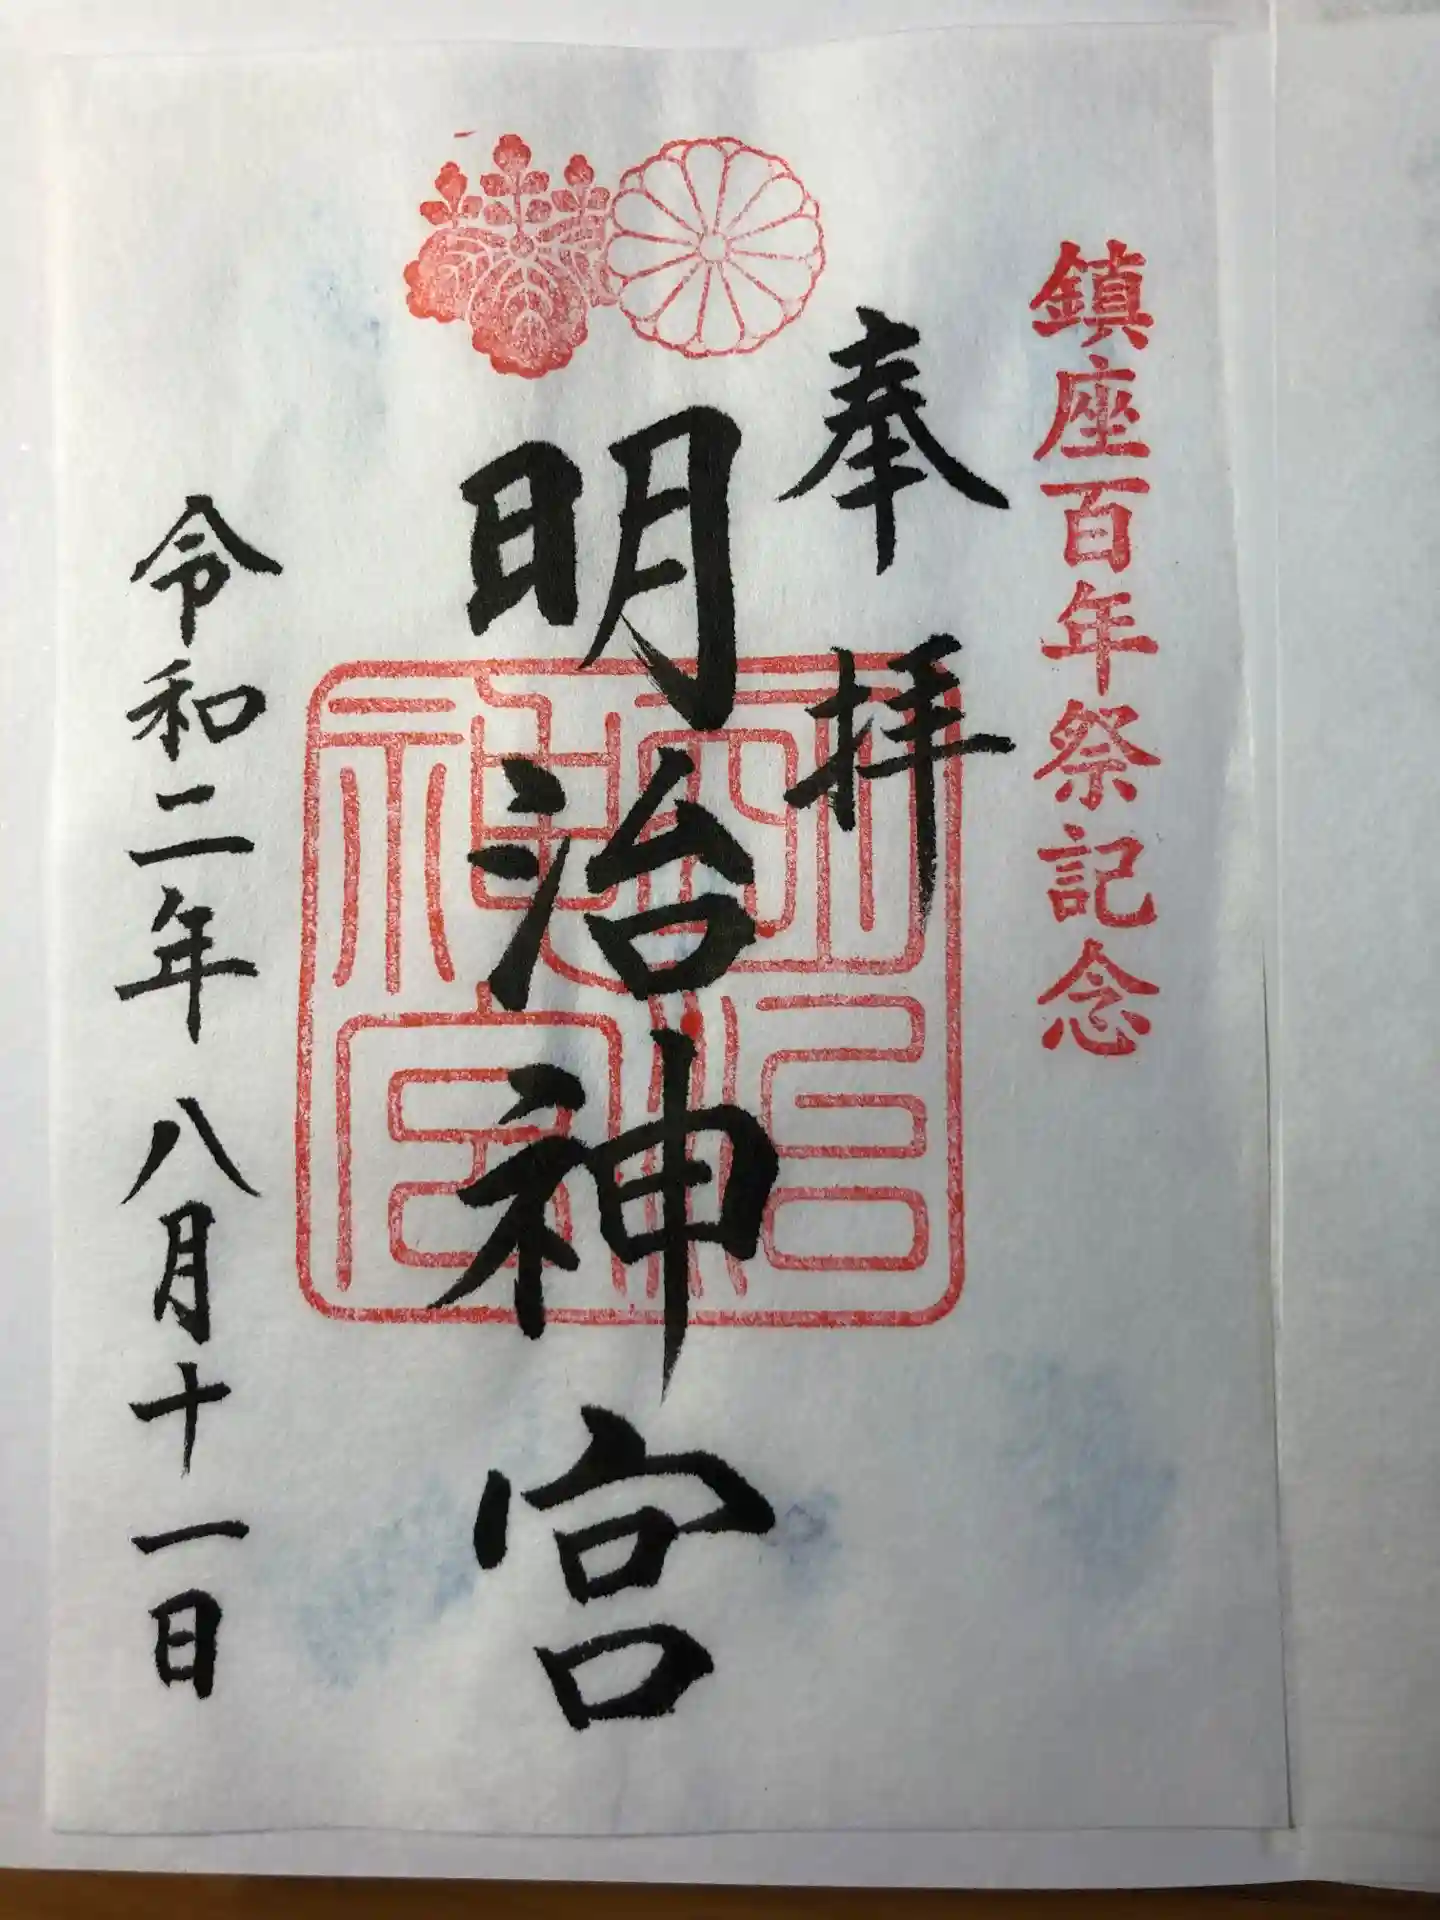 鎮座百年祭記念
奉拝
明治神宮
明治神宮
令和二年八月十一日